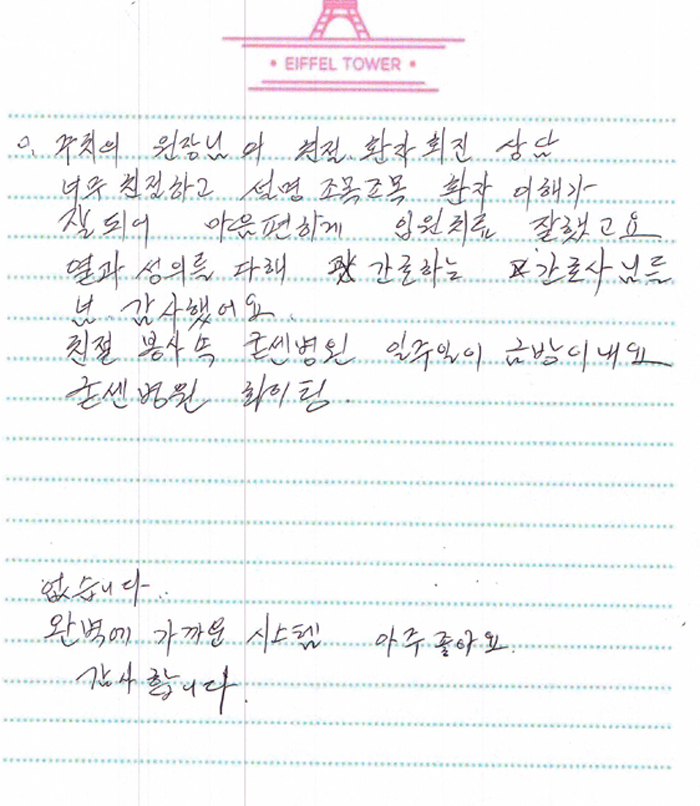 • EIFFEL TOWER •
주치의 원장님의 친절 환자 회진 상담
너무 친절하고 설명 조목조목 환자 이해가
잘 되어 마음편하게 입원치료 잘했고요
열과 성의를 다해 간로하는 간로사님들
넘 감사했어요.
친절 봉사 굳센병원 일주일이 금방이네요
굳센병원 화이팅.
없습니다..
완벽에 가까운 시스템 아주 좋아요.
감사합니다.